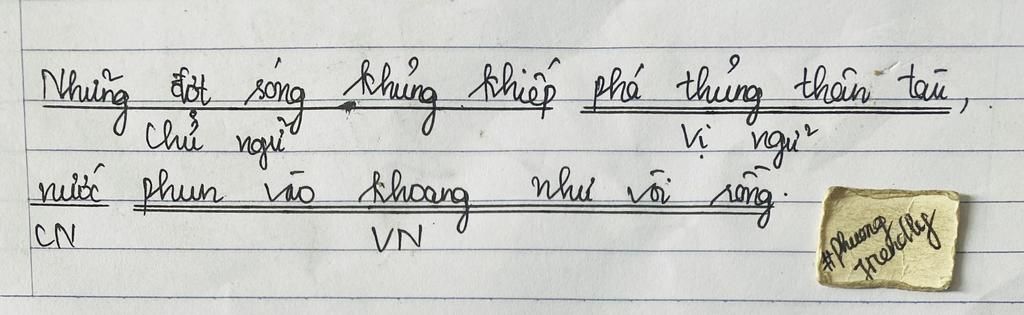 Những đợt sóng khủng khiếp phá thủng thân tàu,
Chủ ngữ Vị ngữ
nước phun vào khoang như vòi rồng.
CN VN
#phuong
friendly